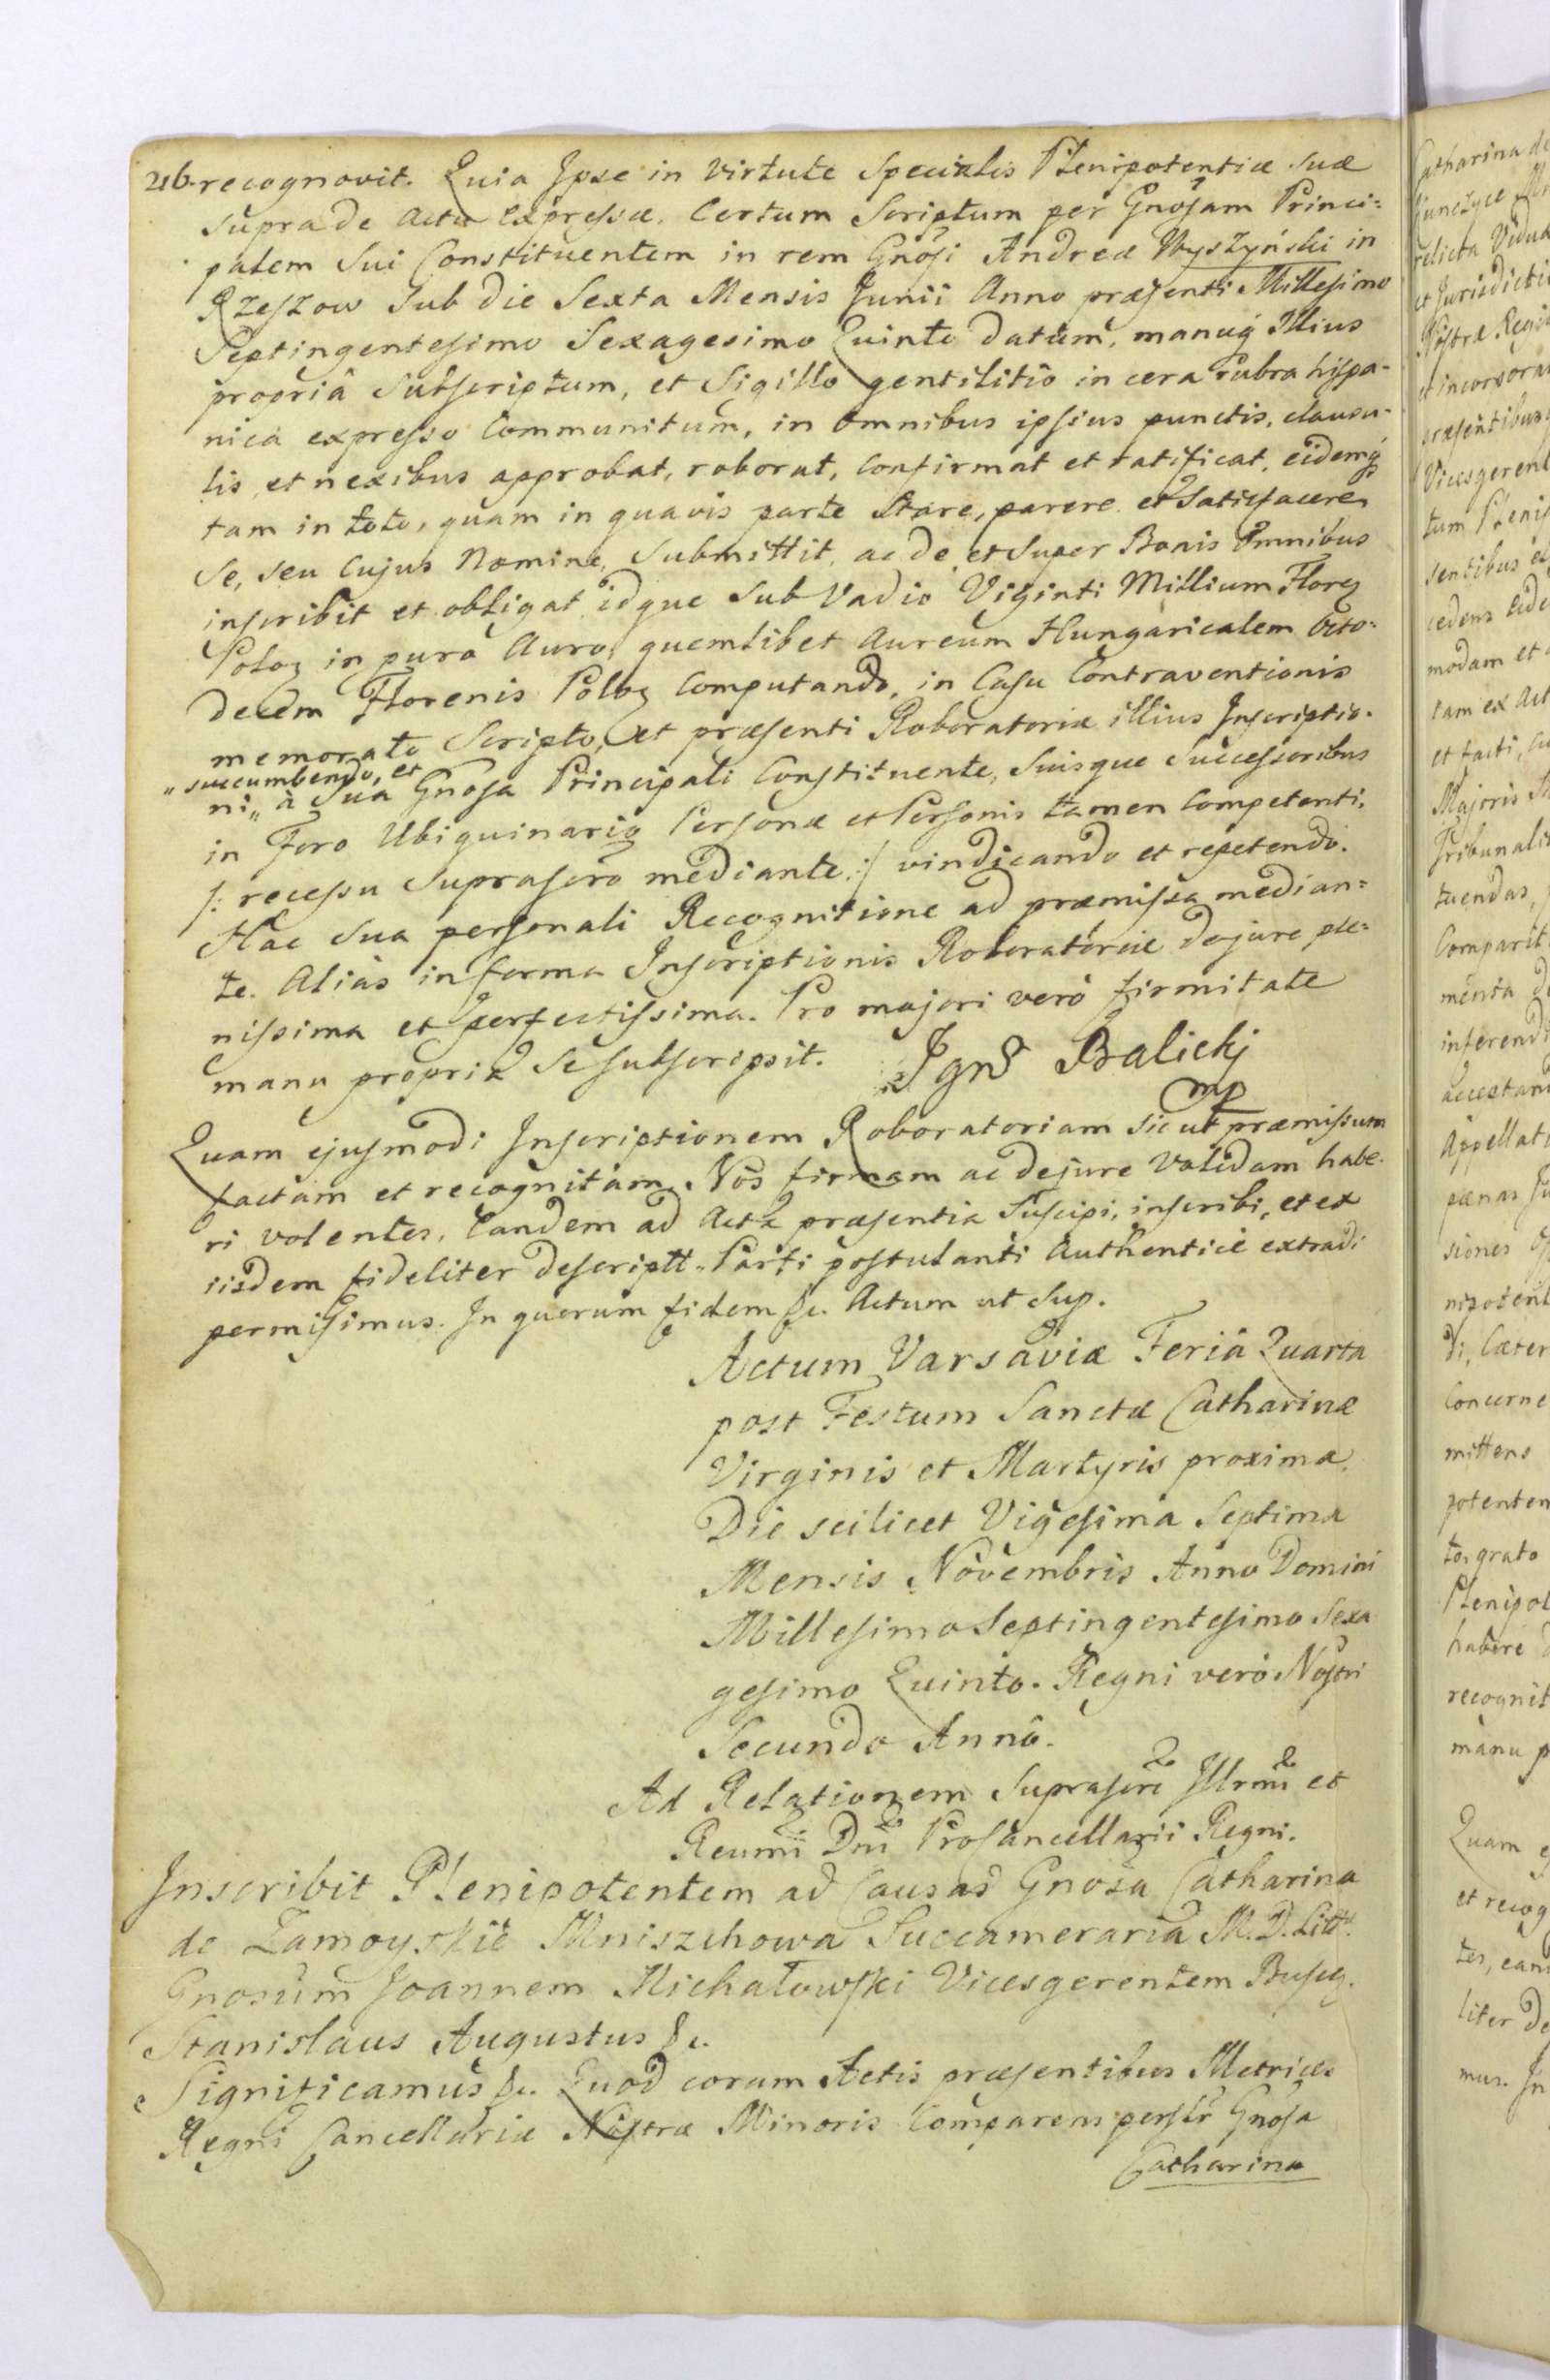 216. recognovit. Quia Ipse in Virtute Specialis Plenipotentiæ Suæ
supra de Actu Expressæ. Certum Scriptum per Gnosam Princi=
palem Sui Constituentem in rem Gnosi Andreæ Wyszyński in
Rzeszow Sub Die Sexta Mensis Junii Anno præsenti Millesimo
Septingentesimo Sexagesimo Quinto Datum, manuq3 Illius
propriâ Subscriptum, et Sigillo gentilitio in cera rubra hispa-
nica expresso Communitum, in omnibus ipsius punctis, clausu-
lis, et nexibus approbat, roborat, Confirmat et ratificat, eidemq3
tam in toto, quam in quavis parte Stare, parere et Satisfacere
Se, seu Cujus Nomine, Submittit, ac de, et Super Bonis Omnibus
inscribit et obligat idque Sub Vadio Viginti Millium Florz
Poloz in puro Auro, quemlibet Aureum Hungaricalem Octo=
decem Florenis Poloz Computando, in Casu Contraventionis
memorato Scripto, et præsenti Roboratoriæ illius Inscriptio-
" succumbendo, et
ni " à Sua Gnosa Principali Constituente, Suisque Successoribus
in Foro Ubiquinario Personæ et Personis tamen Competenti,
/: recessu Suprascro mediante :/ vindicando et repetendo.
Hac Sua personali Recognitione ad præmissa median=
te. Alias in forma Inscriptionis Roboratoriæ de jure ple=
nissima et perfectissima. Pro majori verò firmitate
manu propria Se Subscripsit. Igns Balickj
mp
Quam ejusmodi Inscriptionem Roboratoriam Sic ut præmissum
factam et recognitam. Nos firmam ac de jure Validam habe-
ri volentes, Eandem ad Acta præsentia Suscipi, inscribi, et ex
iisdem fideliter descriptt. Parti postulanti Authenticè extradi
permisimus. In quorum fidem &c. Actum ut Sup.
Actum Varsaviæ Feriâ Quarta
post Festum Sanctæ Catharinæ
Virginis et Martyris proxima.
Die scilicet Vigesima Septima
Mensis Novembris Anno Domini
Millesimo Septingentesimo Sexa
gesimo Quinto. Regni verò Nostri
Secundo Annô.
Ad Relationem Suprascri Illrmi et
Reumi Dni ProCancellarii Regni.
Inscribit Plenipotentem ad Causas Gnosa Catharina
de Zamoyskie Mniszchowa Succameraria M. D. Litt.
Gnosum Joannem Michałowski Vicesgerentem Buscz.
Stanislaus Augustus &c.
Significamus &c. Quod coram Actis præsentibus Metrices
Regni Cancellariæ Nostræ Minoris Comparens perslr Gnosa
Catharina